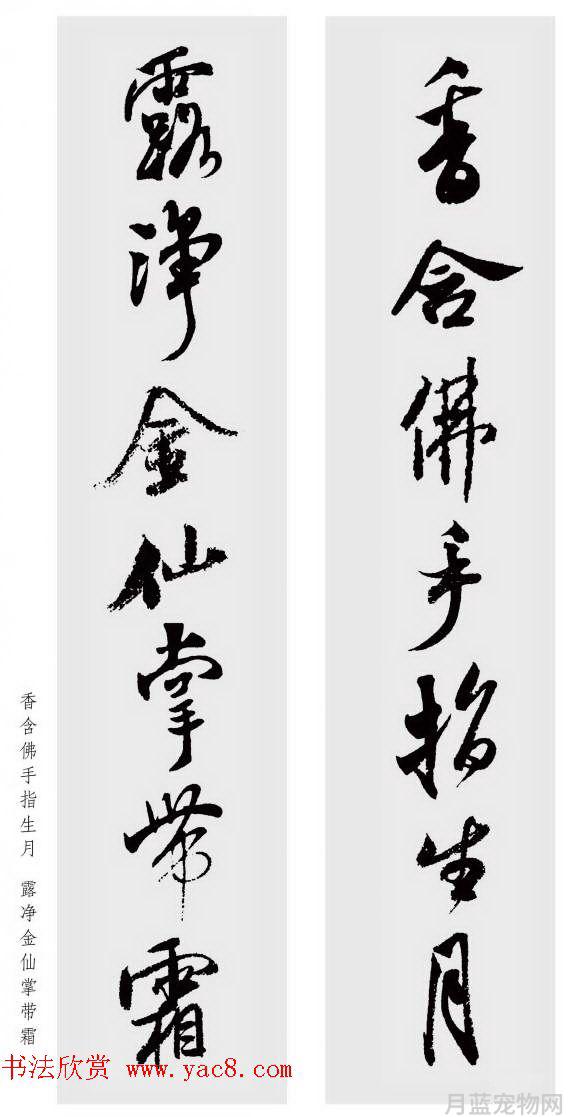 香含佛手指生月
露淨金仙掌帶霜
香含佛手指生月 露净金仙掌带霜
书法欣赏 www.yac8.com
月蓝宠物网